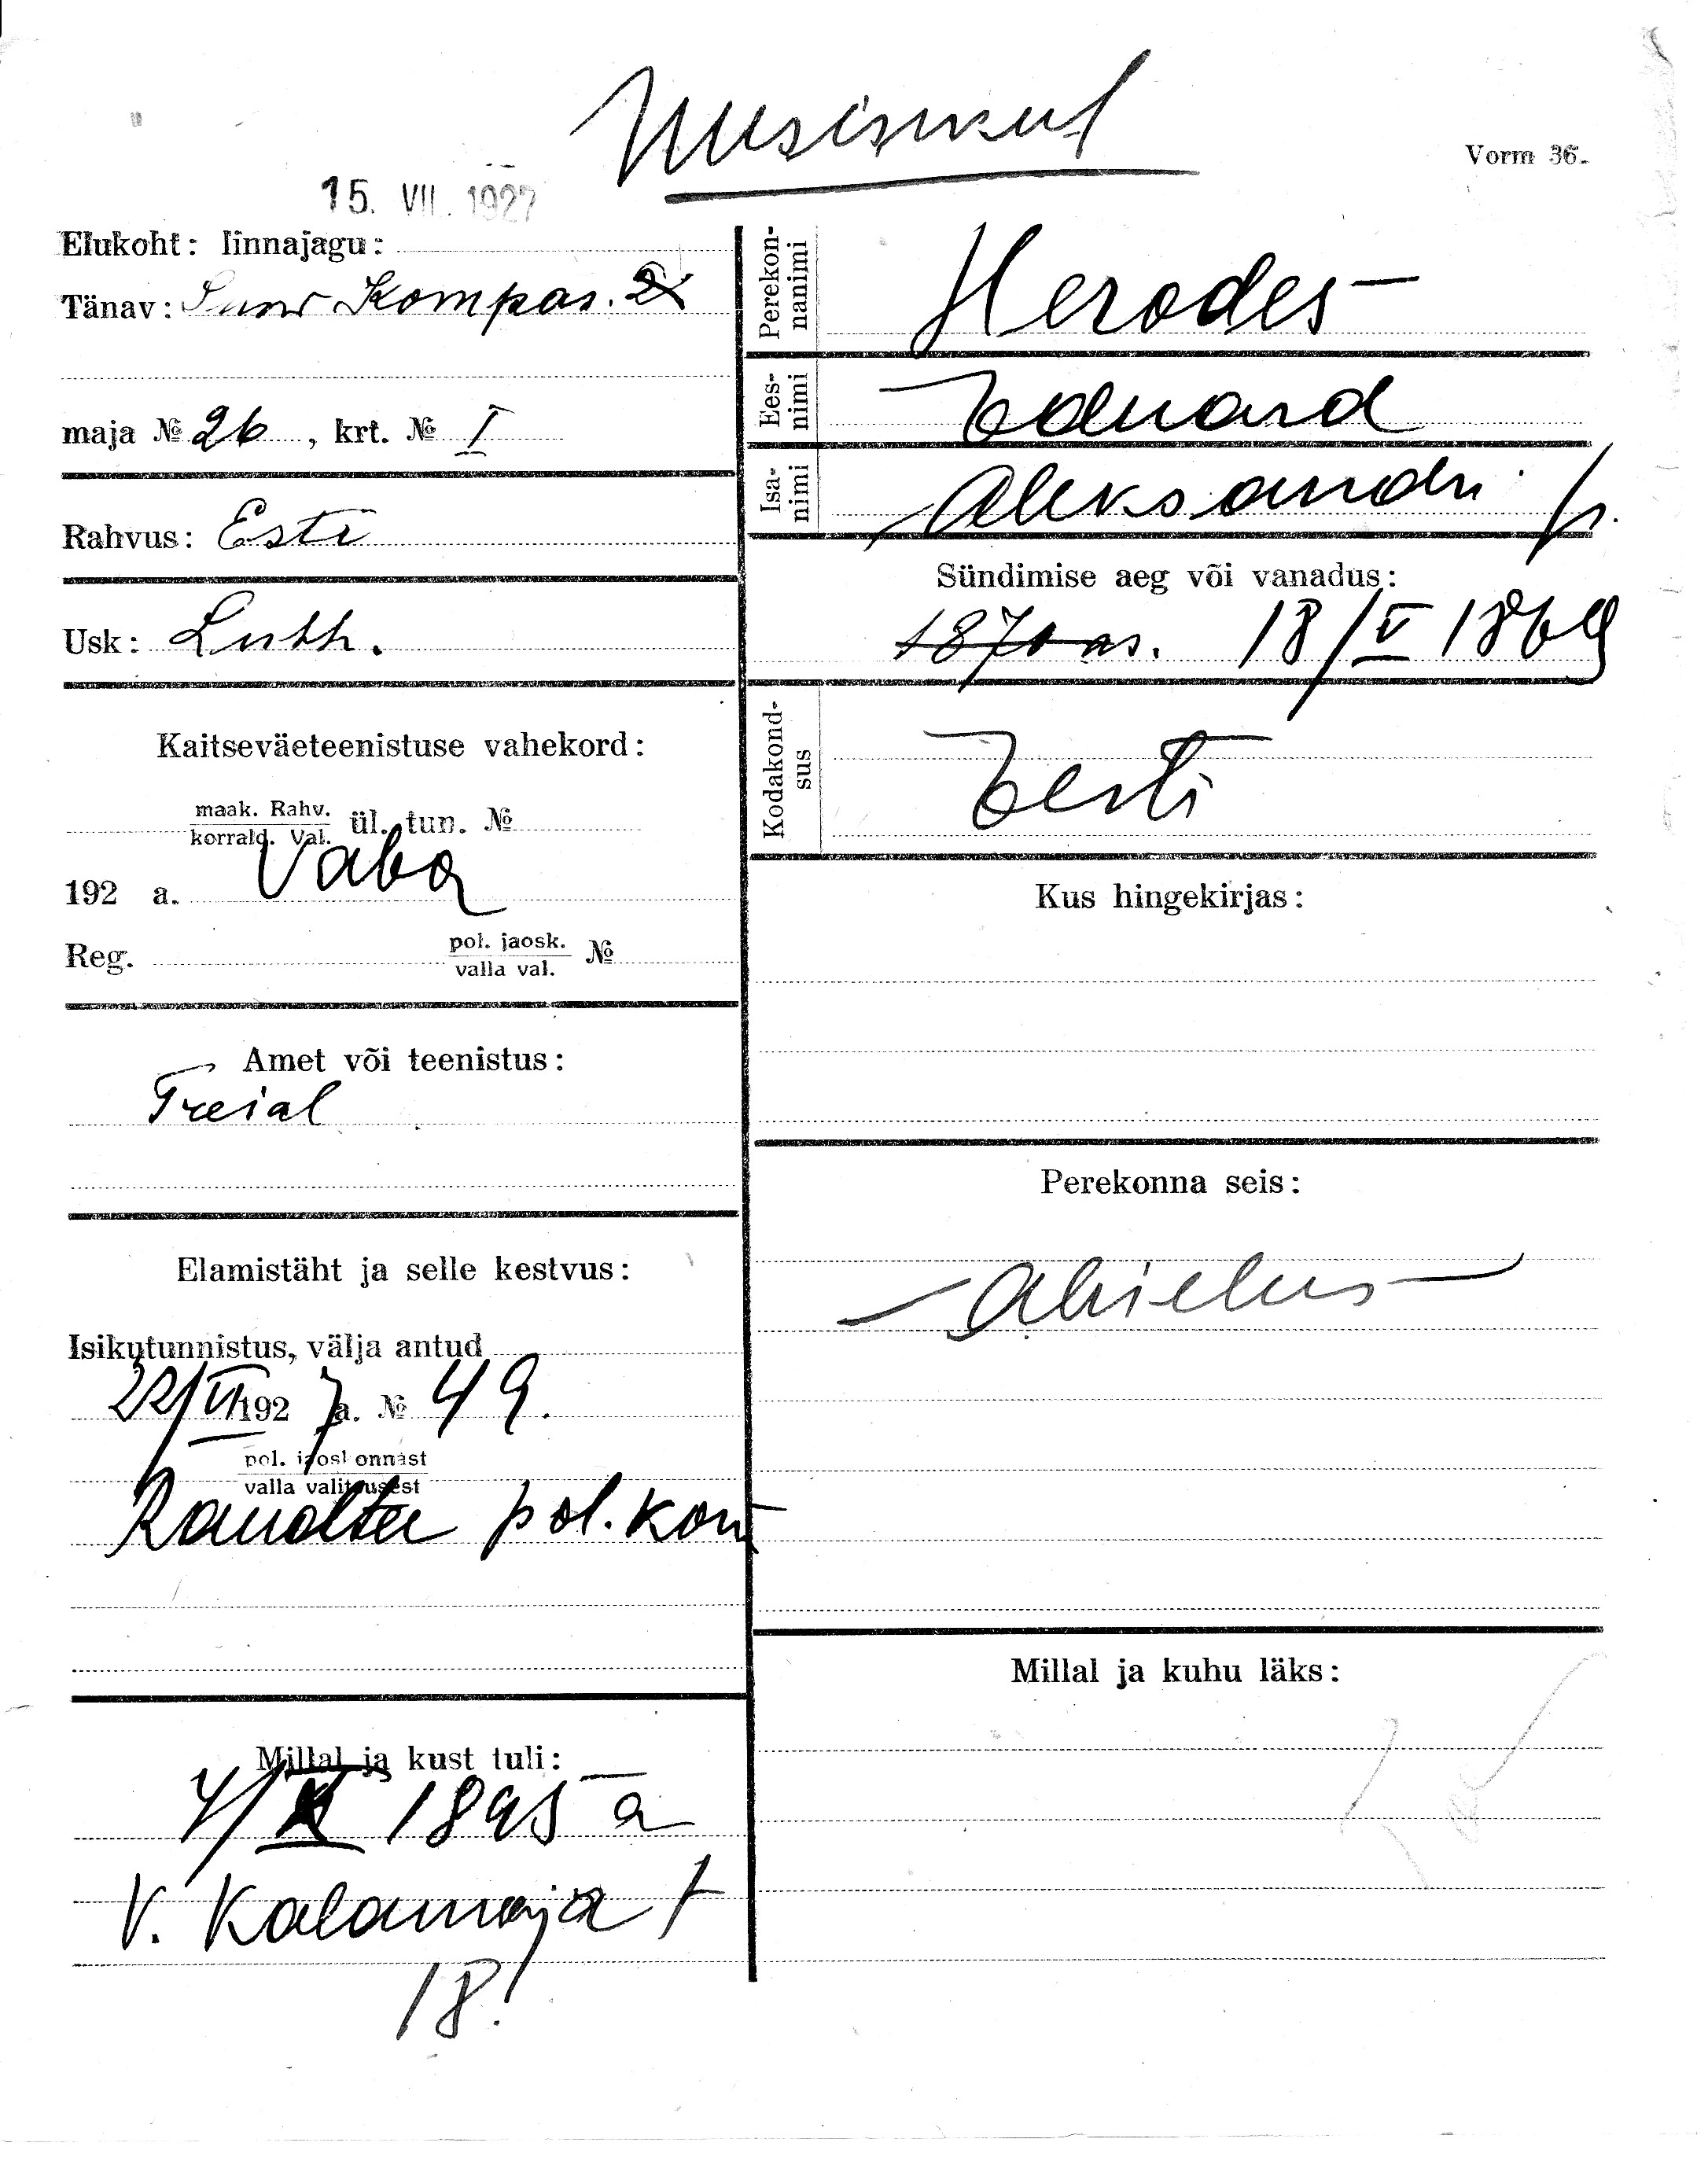 Vorm 36.
15. VII. 1927
Elukoht: linnajagu:
Tänav: Suur Kompas.
maja № 26, krt. № I
Rahvus: Esti
Usk: Luth.
Kaitseväeteenistuse vahekord:
maak. Rahv.
korrald. Val. ül. tun. №
192 a. Vaba
Reg. pol. jaosk.
valla val. №
Amet või teenistus:
Treial
Elamistäht ja selle kestvus:
Isikutunnistus, välja antud
22/VI 1927 a. № 49.
pol. jaoskonnast
valla valitsusest
pol. kom
Millal ja kust tuli:
1895 a
V. Kalamaja t
18.
Perekon-
nanimi Herodes
Ees-
nimi Eduard
Isa-
nimi Aleksandri p.
Sündimise aeg või vanadus:
1870 as. 18/V 1869
Kodakond-
sus Eesti
Kus hingekirjas:
Perekonna seis:
abielus
Millal ja kuhu läks: